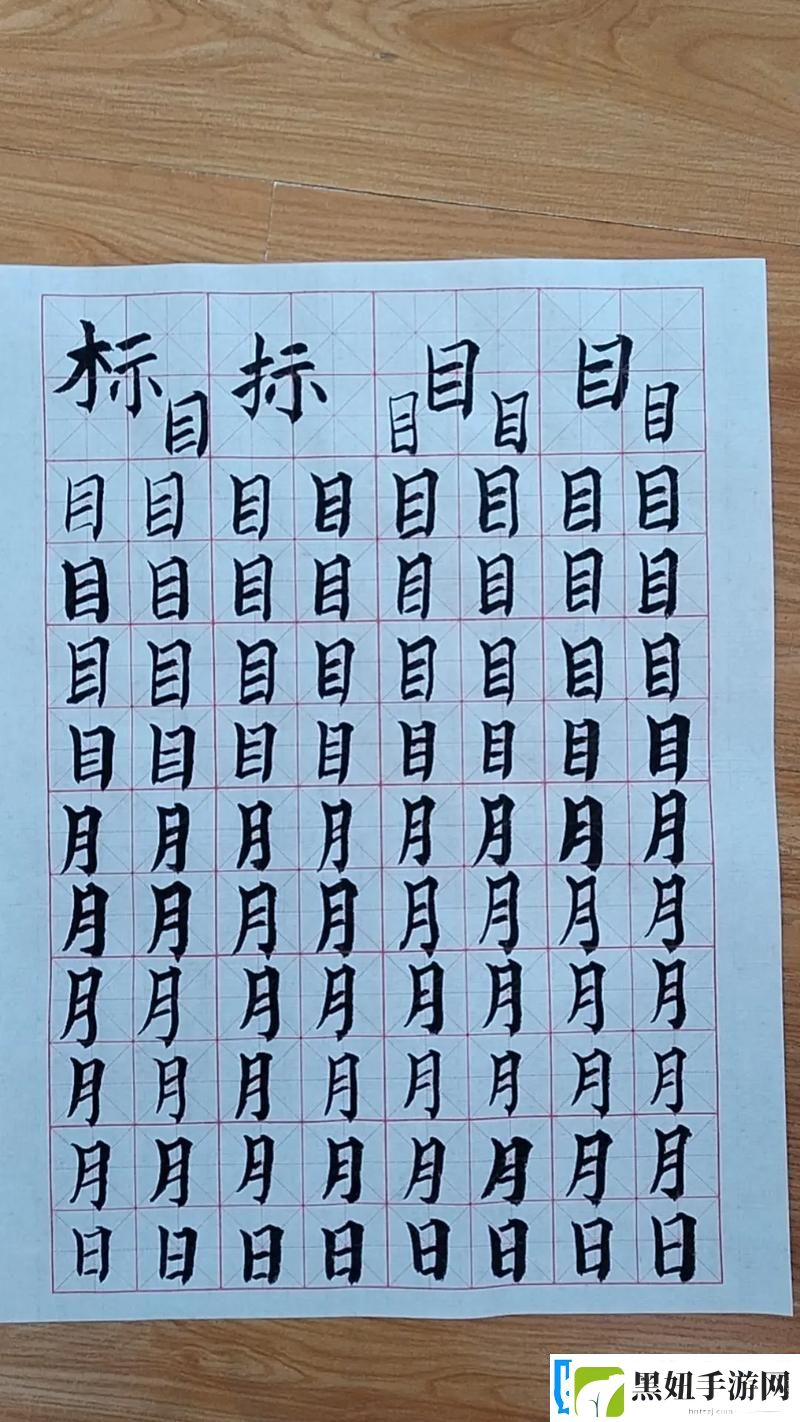 标目标目目目目目
目目目目目目目目
目目目目目目目目
目目目目目目目目
目目目目目目目目
月月月月月月月月
月月月月月月月月
月月月月月月月月
月月月月月月月月
月月月月月月月月
日日日日日日日日
黑妞手游网